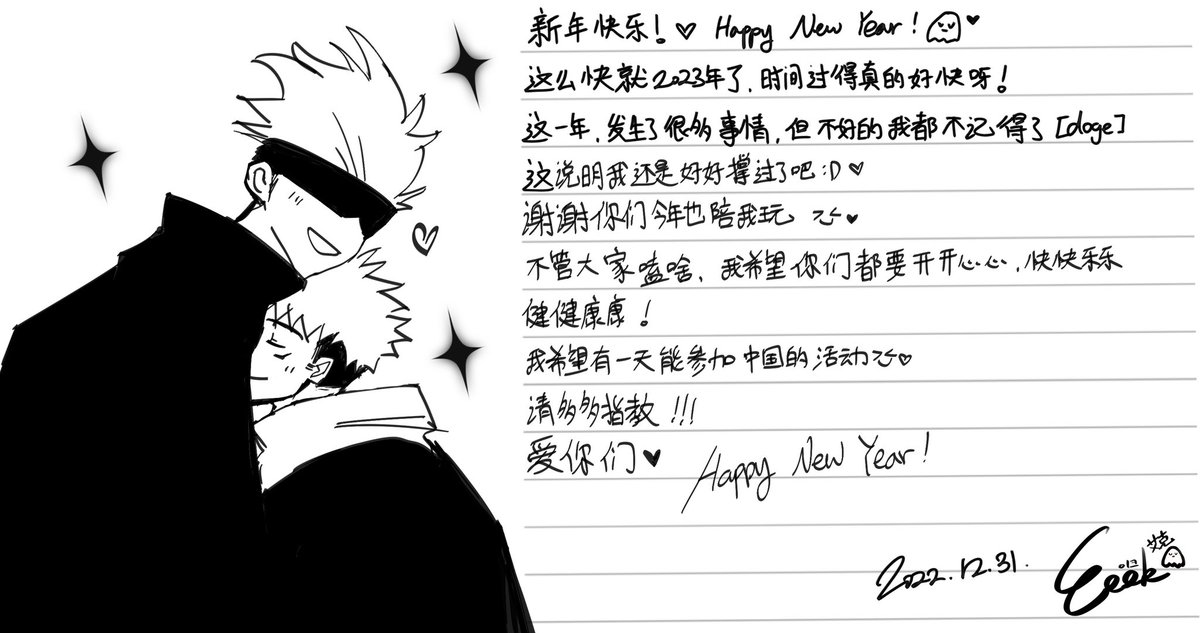 新年快乐！♥ Happy New Year！♥
这么快就2023年了，时间过得真的好快呀！
这一年，发生了很多事情，但不好的我都不记得了［doge］
这说明我还是好好撑过了吧：D ♥
谢谢你们今年也陪我玩 ♥
不管大家嗑啥，我希望你们都要开开心心，快快乐乐
健健康康！
我希望有一天能参加中国的活动♥
请多多指教！！！
爱你们♥ Happy New Year！
2022.12.31.
艾克